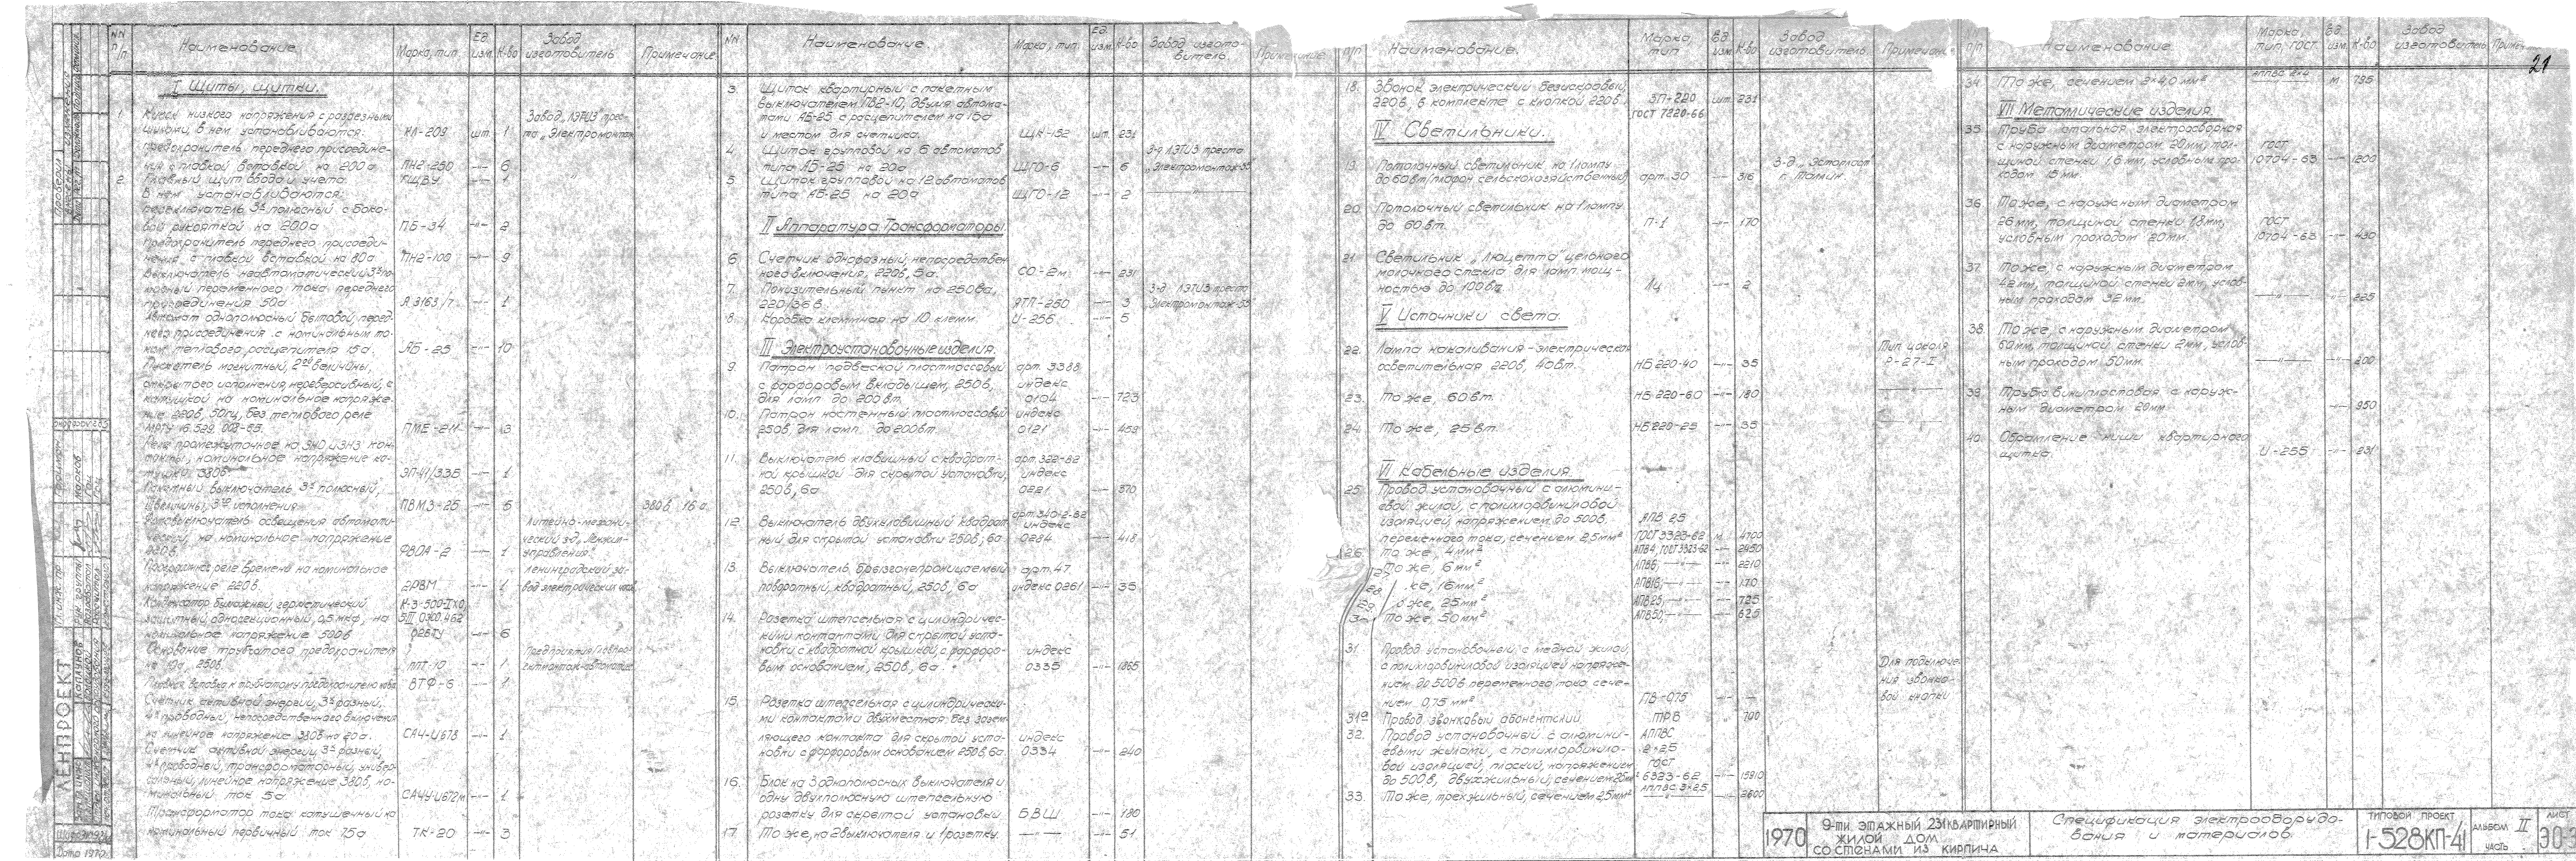 NN п/п Наименование. Марка, тип. Ед. изм. К-во Завод изготовитель Примечание
I Щиты, щитки.
1. Киоск низкого напряжения с разрезными
шинами, в нем устанавливаются: КЛ-209 шт. 1 Завод „ЛЭТИЗ" треста „Электромонтаж
предохранитель переднего присоедине-
ния с плавкой вставкой на 200а ПН2-250 —"— 6
2. Главный щит ввода и учета ГЩВУ —"— 1
В нем устанавливаются:
переключатель 3х полюсный с боко-
вой рукояткой на 200а ПБ-34 —"— 2
Предохранитель переднего присоеди-
нения с плавкой вставкой на 80а ПН2-100 —"— 9
Выключатель неавтоматический 3х по-
люсный переменного тока переднего
присоединения 50а А 3163/7 —"— 1
Автомат однополюсный бытовой, перед-
него присоединения с номинальным то-
ком теплового расцепителя 15а. АБ-25 —"— 10
Пускатель магнитный, 2ой величины,
открытого исполнения, нереверсивный, с
катушкой на номинальное напряже-
ние 220в, 50гц, без теплового реле
МРТУ 16.529.008-65. ПМЕ-211 —"— 3
Реле промежуточное на 3НО и 3НЗ кон-
такты, номинальное напряжение ка-
тушки 380в ЭП-41/33Б —"— 1
Пакетный выключатель 3х полюсный,
величины, 3го исполнения ПВМ3-25 —"— 5 380в, 16а.
Фотовыключатель освещения автомати-
ческий, на номинальное напряжение
220в. ФВОА-2 —"— 1 Литейно-механи-
ческий з-д „Ленжил-
управления"
Программное реле времени на номинальное
напряжение 220в. 2РВМ —"— 1 Ленинградский за-
вод электрических часов
Конденсатор бумажный, герметический
защитный, односекционный, 0,5 мкф, на
номинальное напряжение 500в —"— 6
Основание трубчатого предохранителя
на 10а, 250в. ППТ-10 —"— 1
Плавкая вставка к трубчатому предохранителю ВТФ-6 —"— 1
Счетчик активной энергии, 3х фазный,
4х проводный, непосредственного включения
на линейное напряжение 380в на 20а. СА4-И678 —"— 1
Счетчик активной энергии, 3х фазный,
4х проводный, трансформаторный, универ-
сальный, линейное напряжение 380в, но-
минальный ток 5а СА4У-И672м —"— 1
Трансформатор тока катушечный на
номинальный первичный ток 75а ТК-20 —"— 3
NN Наименование. Марка, тип. Ед. изм. К-во Завод изгото-
витель. Примечание.
3. Щиток квартирный с пакетным
выключателем ПВ2-10, двумя автома-
тами АБ-25 с расцепителем на 15а
и местом для счетчика. ЩК-152 шт. 231
4. Щиток групповой на 6 автоматов
типа АБ-25 на 20а ЩГО-6 —"— 6 З-д ЛЭТИЗ треста
„Электромонтаж-55"
5. Щиток групповой на 12 автоматов
типа АБ-25 на 20а ЩГО-12 —"— 2 —"—
II Аппаратура. Трансформаторы.
6. Счетчик однофазный, непосредствен-
ного включения, 220в, 5а. СО-2м —"— 231
7. Понизительный пункт на 250ва,
220/36 в. ЯТП-250 —"— 3 З-д ЛЭТИЗ треста
„Электромонтаж-55"
8. Коробка клеммная на 10 клемм. И-256 —"— 5
III Электроустановочные изделия.
9. Патрон подвесной пластмассовый
с фарфоровым вкладышем, 250в,
для ламп до 200вт. арт. 3388 индекс 0104 —"— 723
10. Патрон настенный пластмассовый
250в, для ламп до 200вт. индекс 0121 —"— 459
11. Выключатель клавишный с квадрат-
ной крышкой для скрытой установки,
250в, 6а арт. 322-82 индекс 0221 —"— 370
12. Выключатель двухклавишный квадрат-
ный для скрытой установки 250в, 6а арт. 340-2-82 индекс 0284 —"— 418
13. Выключатель брызгонепроницаемый
поворотный, квадратный, 250в, 6а арт. 47 индекс 0261 —"— 35
14. Розетка штепсельная с цилиндричес-
кими контактами для скрытой уста-
новки с квадратной крышкой, с фарфоро-
вым основанием, 250в, 6а. индекс 0335 —"— 1865
15. Розетка штепсельная с цилиндрически-
ми контактами двухместная без зазем-
ляющего контакта для скрытой уста-
новки с фарфоровым основанием 250в, 6а. индекс 0334 —"— 240
16. Блок на 3 однополюсных выключателя и
одну двухполюсную штепсельную
розетку для скрытой установки. БВШ —"— 180
17. То же, на 2 выключателя и 1 розетку. —"— —"— 51
п/п Наименование. Марка, тип Ед. изм. К-во Завод изготовитель Примечан.
18. Звонок электрический безискровый,
220в, в комплекте с кнопкой 220в. ЗП-220 ГОСТ 7220-66 шт. 231
IV Светильники.
19. Потолочный светильник на 1 лампу
до 60вт (плафон сельскохозяйственный) арт. 30 —"— 316 З-д „Эстопласт"
г. Таллин.
20. Потолочный светильник на 1 лампу
до 60вт. П-1 —"— 170
21. Светильник „Люцетта" цельного
молочного стекла для ламп мощ-
ностью до 100вт. Лц —"— 2
V Источники света.
22. Лампа накаливания - электрическая
осветительная 220в, 40вт. НБ 220-40 —"— 35 Тип цоколя
Р-27-1
23. То же, 60вт. НБ-220-60 —"— 180 —"—
24. То же, 25вт. НБ220-25 —"— 35 —"—
VI Кабельные изделия.
25. Провод установочный с алюмини-
евой жилой, с полихлорвиниловой
изоляцией, напряжением до 500в.
переменного тока, сечением 2,5мм² АПВ 2,5 ГОСТ 3323-62 м 4700
26. То же, 4мм² АПВ4, ГОСТ 3323-62 —"— 2450
27. То же, 6мм² АПВ6, —"— —"— 2210
28. же, 16мм² АПВ16, —"— —"— 170
29. о же, 25мм² АПВ25, —"— —"— 725
То же, 50мм² АПВ50, —"— —"— 625
31. Провод установочный, с медной жилой,
с полихлорвиниловой изоляцией напряже-
нием до 500в переменного тока, сече-
нием 0,75 мм² ПВ-0,75 —"— — Для подключе-
ния звонко-
вой кнопки
31а Провод звонковый абонентский ТРВ —"— 700
32. Провод установочный с алюмини-
евыми жилами, с полихлорвинило-
вой изоляцией, плоский, напряжением
до 500в, двухжильный, сечением 2,5мм² АППВС 2×2,5 ГОСТ 6323-62 —"— 15910
33. То же, трехжильный, сечением 2,5мм² АППВС 3×2,5 —"— 2600
п/п Наименование. Марка, тип, ГОСТ Ед. изм. К-во Завод изготовитель Примеч.
21
34. То же, сечением 2×4,0 мм² АППВС 2×4 м 795
VII Металлические изделия.
35. Труба стальная электросварная
с наружным диаметром 20мм, тол-
щиной стенки 1,6мм, условным про-
ходом 15мм. ГОСТ 10704-63 —"— 1200
36. То же, с наружным диаметром
26мм, толщиной стенки 1,8мм,
условным проходом 20мм. ГОСТ 10704-63 —"— 430
37. То же, с наружным диаметром
42мм, толщиной стенки 2мм, услов-
ным проходом 32мм. —"— —"— 225
38. То же, с наружным диаметром
60мм, толщиной стенки 2мм, услов-
ным проходом 50мм. —"— —"— 200
39. Труба винипластовая с наруж-
ным диаметром 20мм —"— 950
40. Обрамление ниши квартирного
щитка. И-255 —"— 231
1970
9-ти этажный 231 квартирный
жилой дом
со стенами из кирпича
Спецификация электрооборудо-
вания и материалов.
Типовой проект
1-528КП-41
Альбом II
часть
Лист
ЭО-3
ЛЕНПРОЕКТ
КАПЛУНОВ
Дата 1970